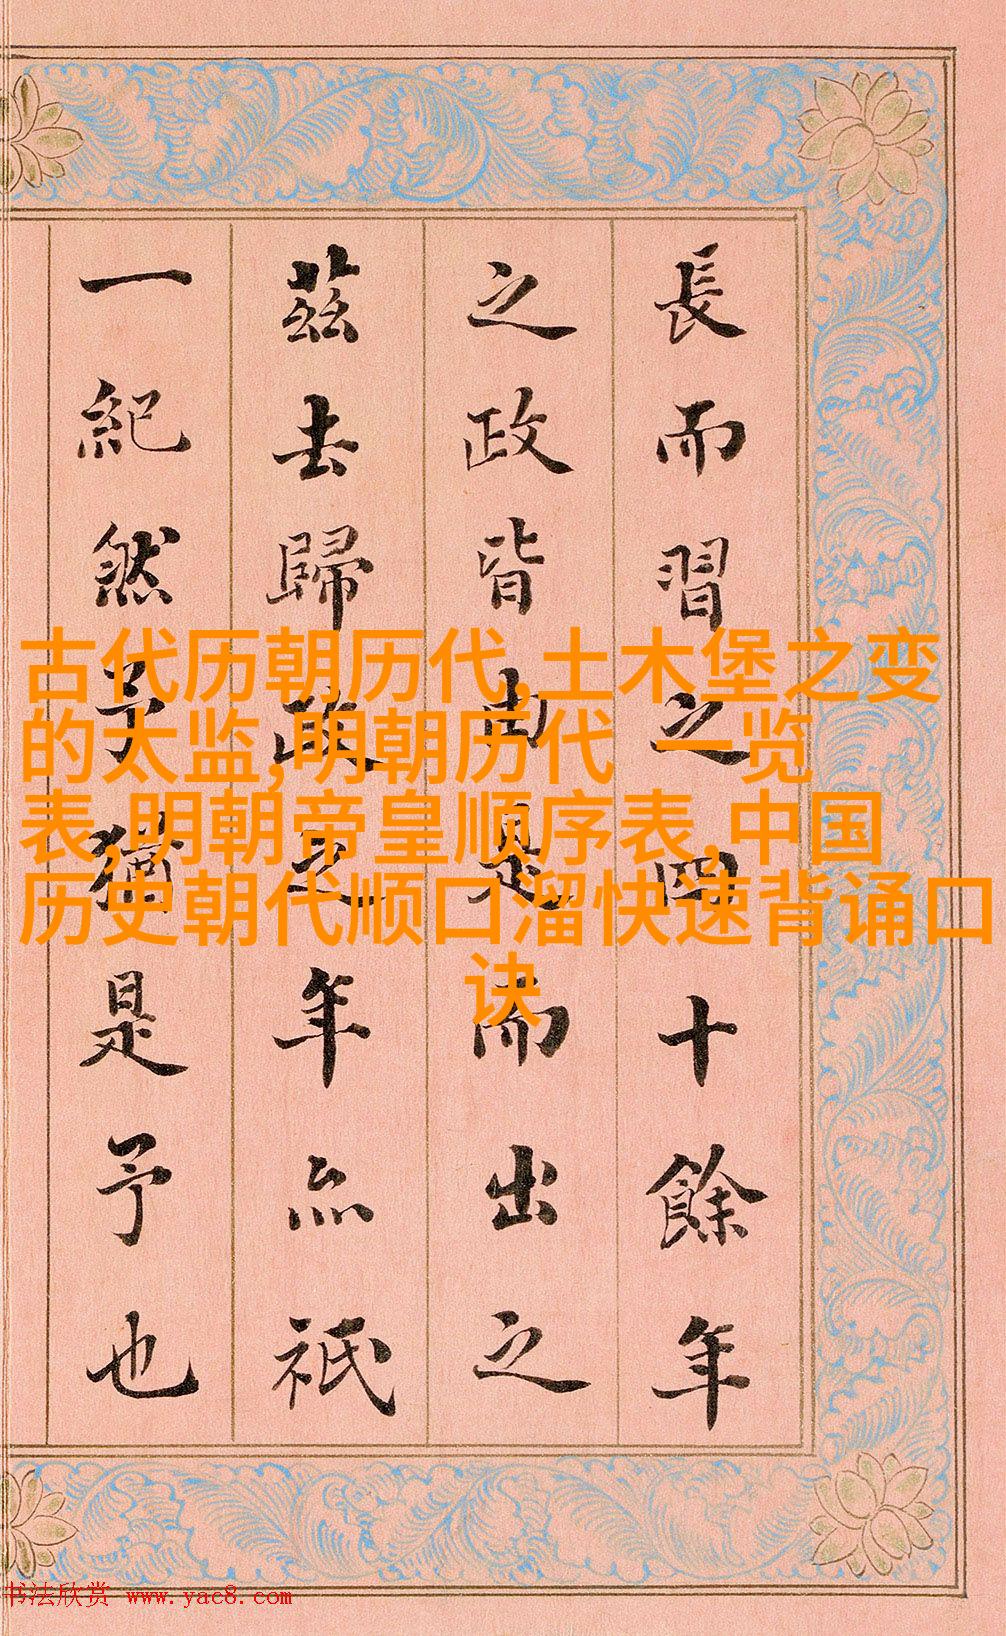 長而習之四十餘年
之政皆由是而出之
茲去歸政之年亦祇
一紀然予猶是予也
古代历朝历代,土木堡之变
的太监,明朝历代 一览
表,明朝帝皇顺序表,中国
历史朝代顺口溜快速背诵口
诀
书法欣赏 www.yac8.com